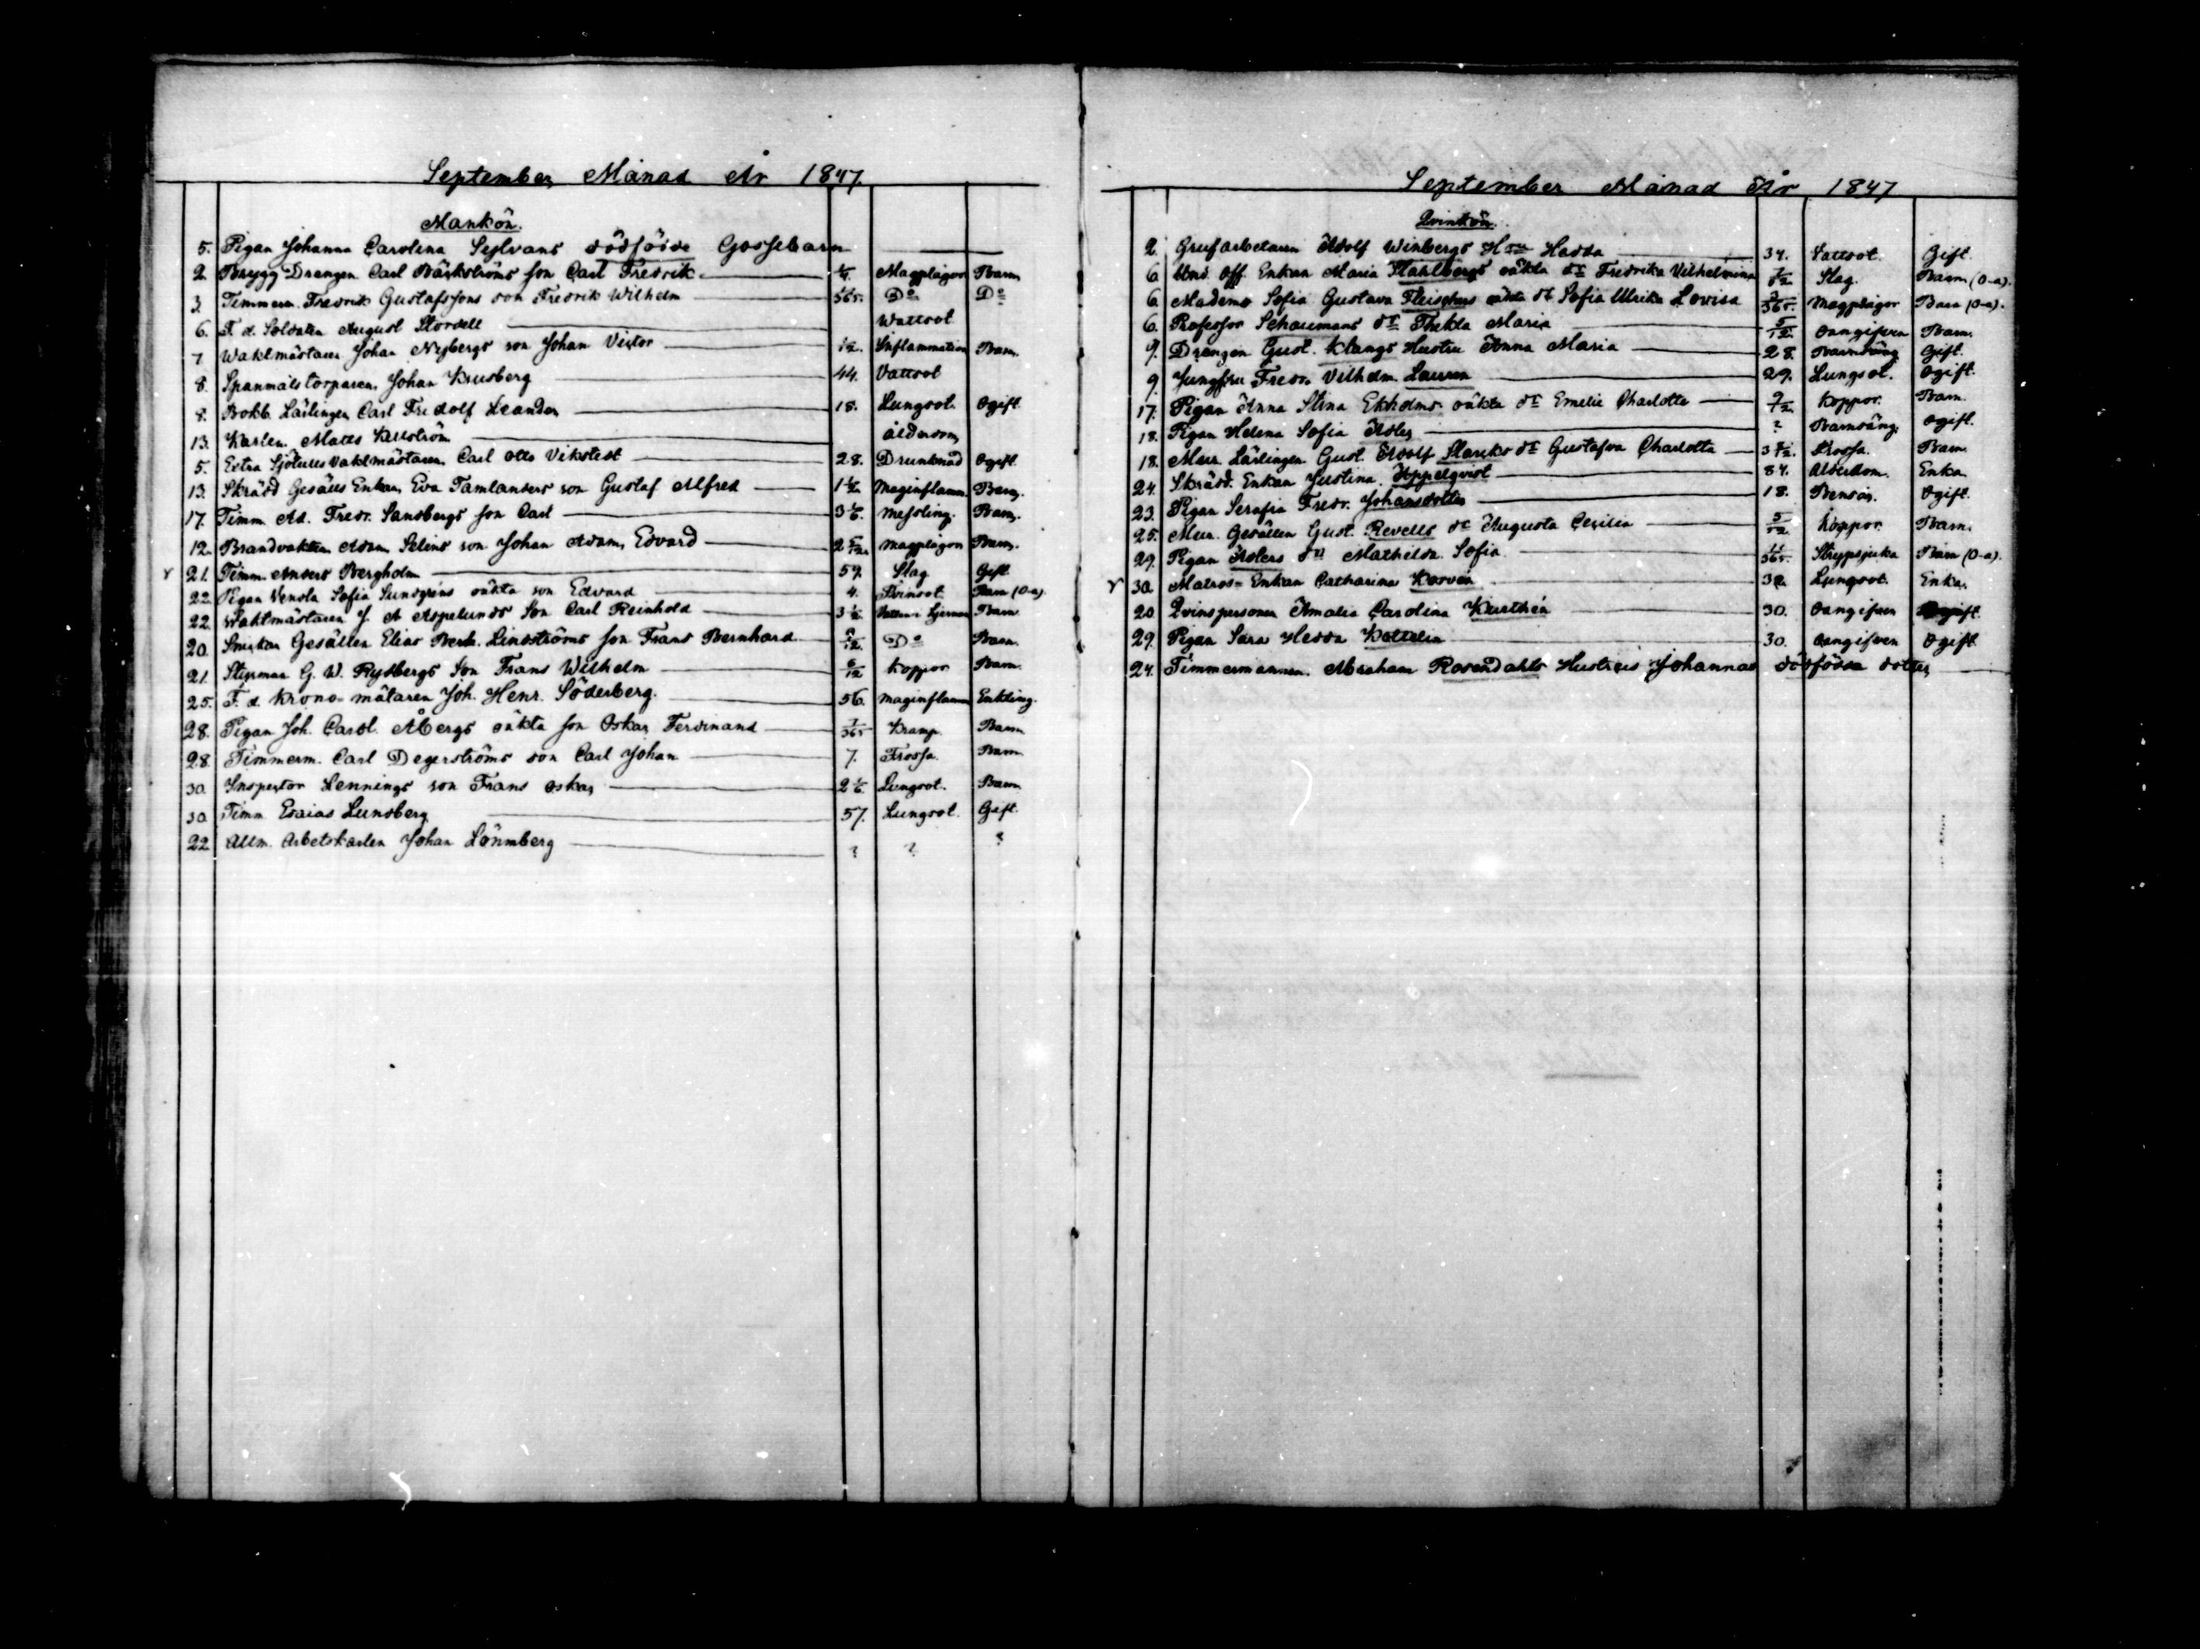 September Månad År 1847.
Mankön.
5. Pigan Johanna Carolina Sylvans dödfödde Gossebarn
2. Brygg Drängen Carl Bäckströms son Carl Fredrik 1/4 Magplågor Barn
3 Timmerm. Fredrik Gustafssons son Fredrik Wilhelm Do Do
6. F. d. Soldaten August Stordell Wattsot
7 Waktmästaren Johan Nybergs son Johan Victor 1/12. Inflammation Barn.
8. Spanmålstorparen Johan Krusberg 44. Vattsot
8. Bokb. Lärlingen Carl Fridolf Leander 18. Lungsot. Ogift.
13. Karlen Matts Kullström ålderdom
5. Extra Sjötulls Vaktmästaren Carl Otto Vikstedt 28. Drunknad Ogift.
13. Skrädd Gesälls Enkan Eva Tamlanders son Gustaf Alfred 1 1/2 Maginflamm. Barn.
17. Timm. Ad. Fredr. Sandbergs son Carl 3 1/6. Messling. Barn.
12. Brandvakten Adam Selins son Johan Adam Edvard 2 5/12. Magplågor Barn.
v 21. Timm. Anders Bergholm 59. Slag Gift.
22. Pigan Vendla Sofia Sundgréns oäkta son Edvard 4. Tvinsot. Barn (O-a).
22. Waktmästaren J. A Aspelunds Son Carl Reinhold 3 1/2. Vatten i hjernan Barn
20. Snickar Gesällen Elias Bernh. Lindströms son Frans Bernhard Do Barn.
21. Styrman G. W. Rydbergs Son Frans Wilhelm 6/12 Koppor Barn.
25. F. d. Krono-mätaren Joh. Henr. Söderberg. 56. Maginflamm Enkling.
28. Pigan Joh. Carol. Åbergs oäkta son Oskar Ferdinand 7/365 Kramp. Barn
28. Timmerm. Carl Degerströms son Carl Johan 7. Frossa. Barn
30. Inspector Lennings son Frans Oskar 2 1/6. Lungsot. Barn
30. Timm. Esaias Lundberg 57. Lungsot. Gift.
22. Allm. Arbetskarlen Johan Lönnberg ? ? ?
September Månad År 1847
Qvinkön.
2. Grufarbetaren Adolf Winbergs Hu Hedda 34. Vattsot. Gift.
6 Und. Off. Enkan Maria Stahlbergs oäkta dr Fredrika Vilhelmina Slag. Barn (O-a).
6. Mademo Sofia Gustava Fleischers oäkta dr Sofia Ulrika Lovisa Magplågor Barn (O-a).
6. Professor Schaumans dr Thekla Maria 5/12. Oangifven Barn.
9. Drängen Gust. Klangs Hustru Anna Maria 28. Barnsäng Gift.
9. Jungfru Fredr. Vilhelm. Lauren 29. Lungsot. Ogift.
17. Pigan Anna Stina Ekholms oäkta dr Emelie Charlotte 9/12. Koppor. Barn.
18. Pigan Helena Sofia Adler ? Barnsäng. Ogift.
18. Mur. Lärlingen Gust. Adolf Starcks dr Gustafva Charlotta Frossa. Barn
24. Skrädd. Enkan Justina Höppelqvist 84. Ålderdom. Enka
23. Pigan Serafia Fredr. Johansdotter 18. Bensår. Ogift.
25. Mur. Gesällen Gust. Revells dr Augusta Cecilia 5/12 Koppor Barn.
29. Pigan Adlers dr Mathilda Sofia 11/365. Strypsjuka Barn (O-a).
v 30. Matros-Enkan Catharina Korvén Lungsot. Enka.
20. Qvinspersonen Amalia Carolina Kurthén 30. Oangifven Ogift.
29. Pigan Sara Hedda Kottelin 30. Oangifven Ogift
24. Timmermannen Abraham Rosendahls Hustrus Johannas dödfödda dotter